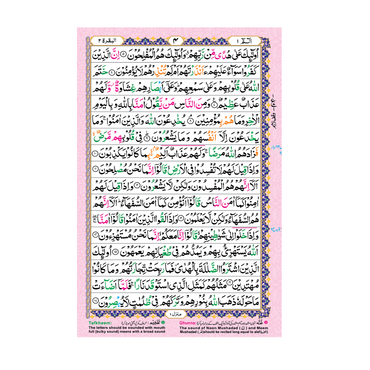 البقرة ٢
٣
الٓمّٓ ١
اُولٰٓئِكَ عَلٰى هُدًى مِّنْ رَّبِّهِمْ وَاُولٰٓئِكَ هُمُ الْمُفْلِحُوْنَ اِنَّ الَّذِيْنَ
كَفَرُوْا سَوَآءٌ عَلَيْهِمْ ءَاَنْذَرْتَهُمْ اَمْ لَمْ تُنْذِرْهُمْ لَا يُؤْمِنُوْنَ خَتَمَ
اللّٰهُ عَلٰى قُلُوْبِهِمْ وَعَلٰى سَمْعِهِمْ وَعَلٰٓى اَبْصَارِهِمْ غِشَاوَةٌ وَّلَهُمْ
عَذَابٌ عَظِيْمٌ وَمِنَ النَّاسِ مَنْ يَّقُوْلُ اٰمَنَّا بِاللّٰهِ وَبِالْيَوْمِ
الْاٰخِرِ وَمَا هُمْ بِمُؤْمِنِيْنَ يُخٰدِعُوْنَ اللّٰهَ وَالَّذِيْنَ اٰمَنُوْا وَمَا
يَخْدَعُوْنَ اِلَّآ اَنْفُسَهُمْ وَمَا يَشْعُرُوْنَ فِيْ قُلُوْبِهِمْ مَّرَضٌ
فَزَادَهُمُ اللّٰهُ مَرَضًا وَلَهُمْ عَذَابٌ اَلِيْمٌ بِمَا كَانُوْا يَكْذِبُوْنَ
وَاِذَا قِيْلَ لَهُمْ لَا تُفْسِدُوْا فِى الْاَرْضِ قَالُوْٓا اِنَّمَا نَحْنُ مُصْلِحُوْنَ
اَلَآ اِنَّهُمْ هُمُ الْمُفْسِدُوْنَ وَلٰكِنْ لَّا يَشْعُرُوْنَ وَاِذَا قِيْلَ لَهُمْ
اٰمِنُوْا كَمَآ اٰمَنَ النَّاسُ قَالُوْٓا اَنُؤْمِنُ كَمَآ اٰمَنَ السُّفَهَآءُ اَلَآ اِنَّهُمْ
هُمُ السُّفَهَآءُ وَلٰكِنْ لَّا يَعْلَمُوْنَ وَاِذَا لَقُوا الَّذِيْنَ اٰمَنُوْا قَالُوْٓا اٰمَنَّا
وَاِذَا خَلَوْا اِلٰى شَيٰطِيْنِهِمْ قَالُوْٓا اِنَّا مَعَكُمْ اِنَّمَا نَحْنُ مُسْتَهْزِءُوْنَ
اَللّٰهُ يَسْتَهْزِئُ بِهِمْ وَيَمُدُّهُمْ فِيْ طُغْيَانِهِمْ يَعْمَهُوْنَ اُولٰٓئِكَ
الَّذِيْنَ اشْتَرَوُا الضَّلٰلَةَ بِالْهُدٰى فَمَا رَبِحَتْ تِّجَارَتُهُمْ وَمَا كَانُوْا
مُهْتَدِيْنَ مَثَلُهُمْ كَمَثَلِ الَّذِى اسْتَوْقَدَ نَارًا فَلَمَّآ اَضَآءَتْ
مَا حَوْلَهٗ ذَهَبَ اللّٰهُ بِنُوْرِهِمْ وَتَرَكَهُمْ فِيْ ظُلُمٰتٍ لَّا يُبْصِرُوْنَ
Tafkheem:
The letters should be sounded with mouth
full (bulky sound) means with a broad sound
Ghunna
The sound of Noon Mushaddad (نّ) and Meem
Mushaddad (مّ) should be recited long equal to alif